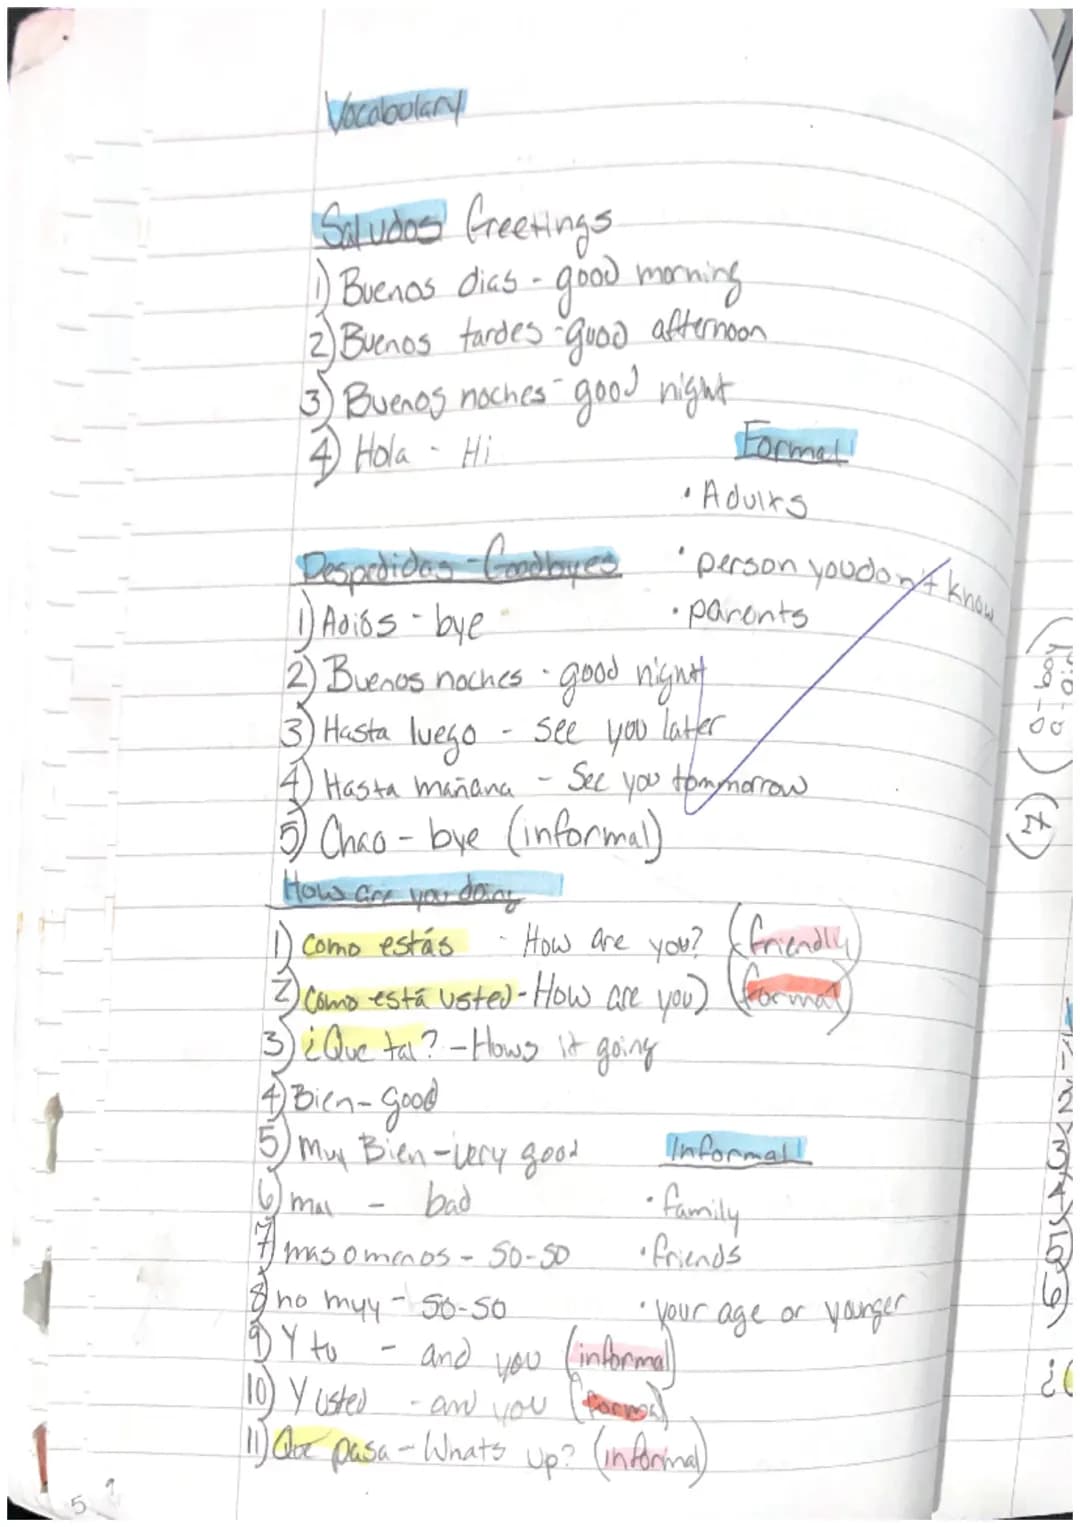 Vocabulary
Saludos Greetings
1) Buenos dias - good morning
2) Buenos tardes - good afternoon
3) Buenos noches - good night
4) Hola - Hi
Formal
• Adults
• person you don't know
• parents
Despedidas - Goodbyes
1) Adiós - bye
2) Buenos noches - good night
3) Hasta luego - see you later
4) Hasta mañana - See you tommorrow
5) Chao - bye (informal)
How are you doing
1) Como estás - How are you? (friendly)
2) Como está usted - How are you) (formal)
3) ¿Que tal? - Hows it going
4) Bien - Good
5) Muy Bien - very good
6) mal - bad
7) mas o menos - SO-SO
8) no muy - SO-SO
9) Y tu - and you (informal)
10) Y usted - and you (formal)
11) Que pasa - Whats up? (informal)
Informal
• family
• friends
• your age or younger
5
2
3)
4)
5)
6)